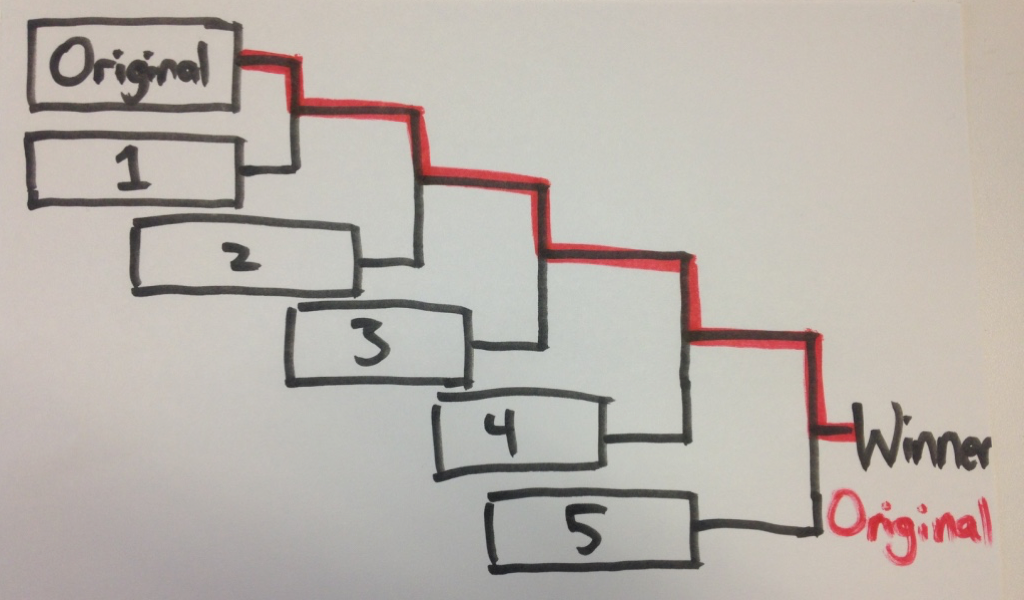 Original
1
2
3
4
Winner
5
Original